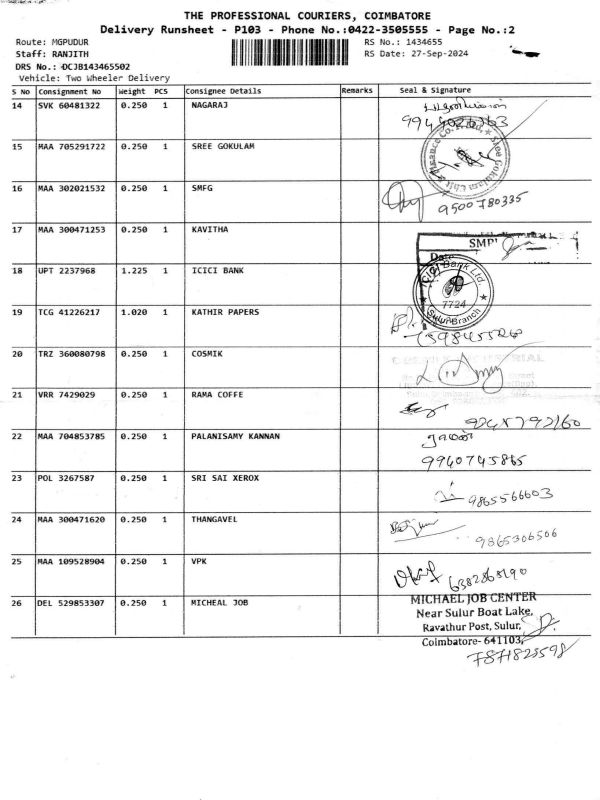 THE PROFESSIONAL COURIERS, COIMBATORE
Delivery Runsheet - P103 - Phone No.:0422-3505555 - Page No.:2
Route: MGPUDUR RS No.: 1434655
Staff: RANJITH RS Date: 27-Sep-2024
DRS No.: DCJB143465502
Vehicle: Two Wheeler Delivery
S No Consignment No Weight PCS Consignee Details Remarks Seal & Signature
14 SVK 60481322 0.250 1 NAGARAJ
15 MAA 705291722 0.250 1 SREE GOKULAM
16 MAA 302021532 0.250 1 SMFG
9500780335
17 MAA 300471253 0.250 1 KAVITHA
SMF
Date
18 UPT 2237968 1.225 1 ICICI BANK
ICICI Bank Ltd.
7724
Sulur Branch
19 TCG 41226217 1.020 1 KATHIR PAPERS
20 TRZ 360080798 0.250 1 COSMIK
21 VRR 7429029 0.250 1 RAMA COFFE
22 MAA 704853785 0.250 1 PALANISAMY KANNAN
9940745865
23 POL 3267587 0.250 1 SRI SAI XEROX
9865566603
24 MAA 300471620 0.250 1 THANGAVEL
9865306506
25 MAA 109528904 0.250 1 VPK
6382868190
26 DEL 529853307 0.250 1 MICHEAL JOB
MICHAEL JOB CENTER
Near Sulur Boat Lake,
Ravathur Post, Sulur,
Coimbatore- 641103,